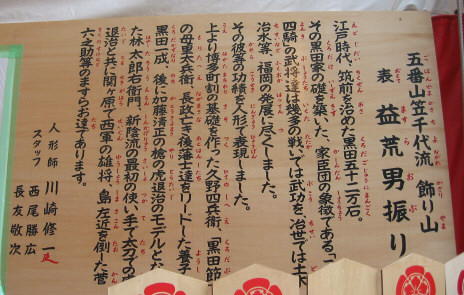 五番山笠千代流 飾り山
表 益荒男振り
江戸時代、筑前を治めた黒田五十二万石。
その黒田家の礎を築いた、家臣団の象徴である、「
四騎の武将達は幾多の戦いでは武功を、治世では土木
治水等、福岡の発展に尽くしました。
その彼等の功績を人形で表現しました。
上より博多町割の基礎を作った久野四兵衛、「黒田節
の母里太兵衛、長政亡き後藩士達をリードした養子
黒田一成、後に加藤清正の槍の虎退治のモデルとな
た林太郎右衛門、新陰流の最初の使い手で太刀での
退治と共に関ヶ原で西軍の雄将、島左近を倒した菅
六之助等のますらお達であります。
人形師 川崎修一
スタッフ 西尾勝広
長友敬次